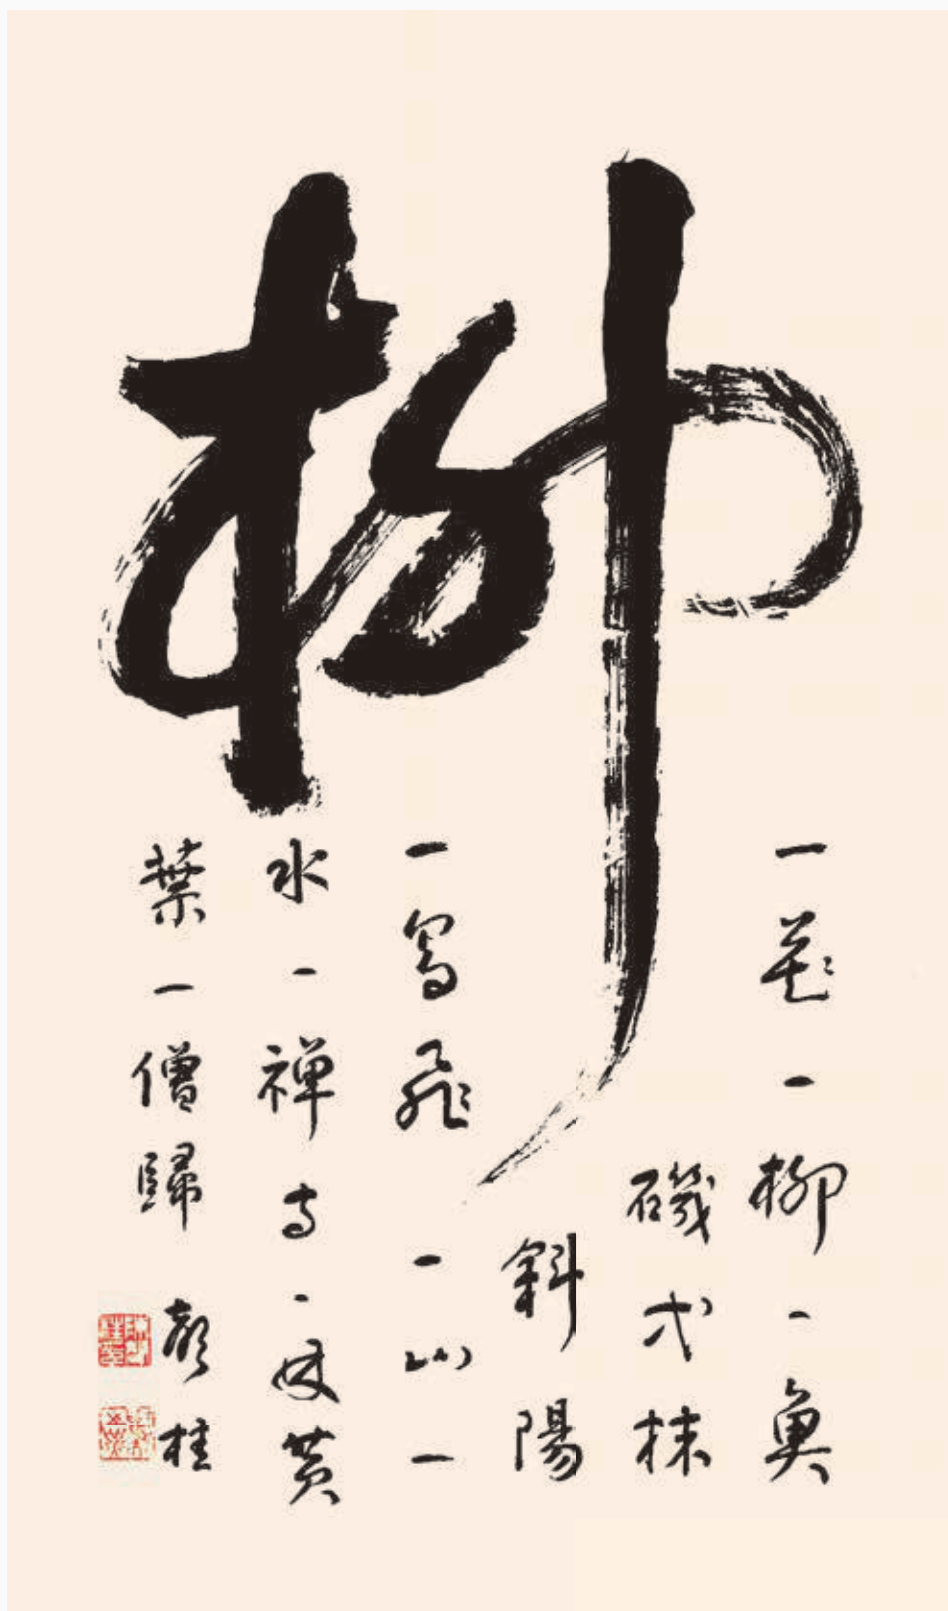 柳
一花一柳一魚
磯弌抹
斜陽
一鳥飛一山一
水一禅寺一黄
葉一僧歸
桂